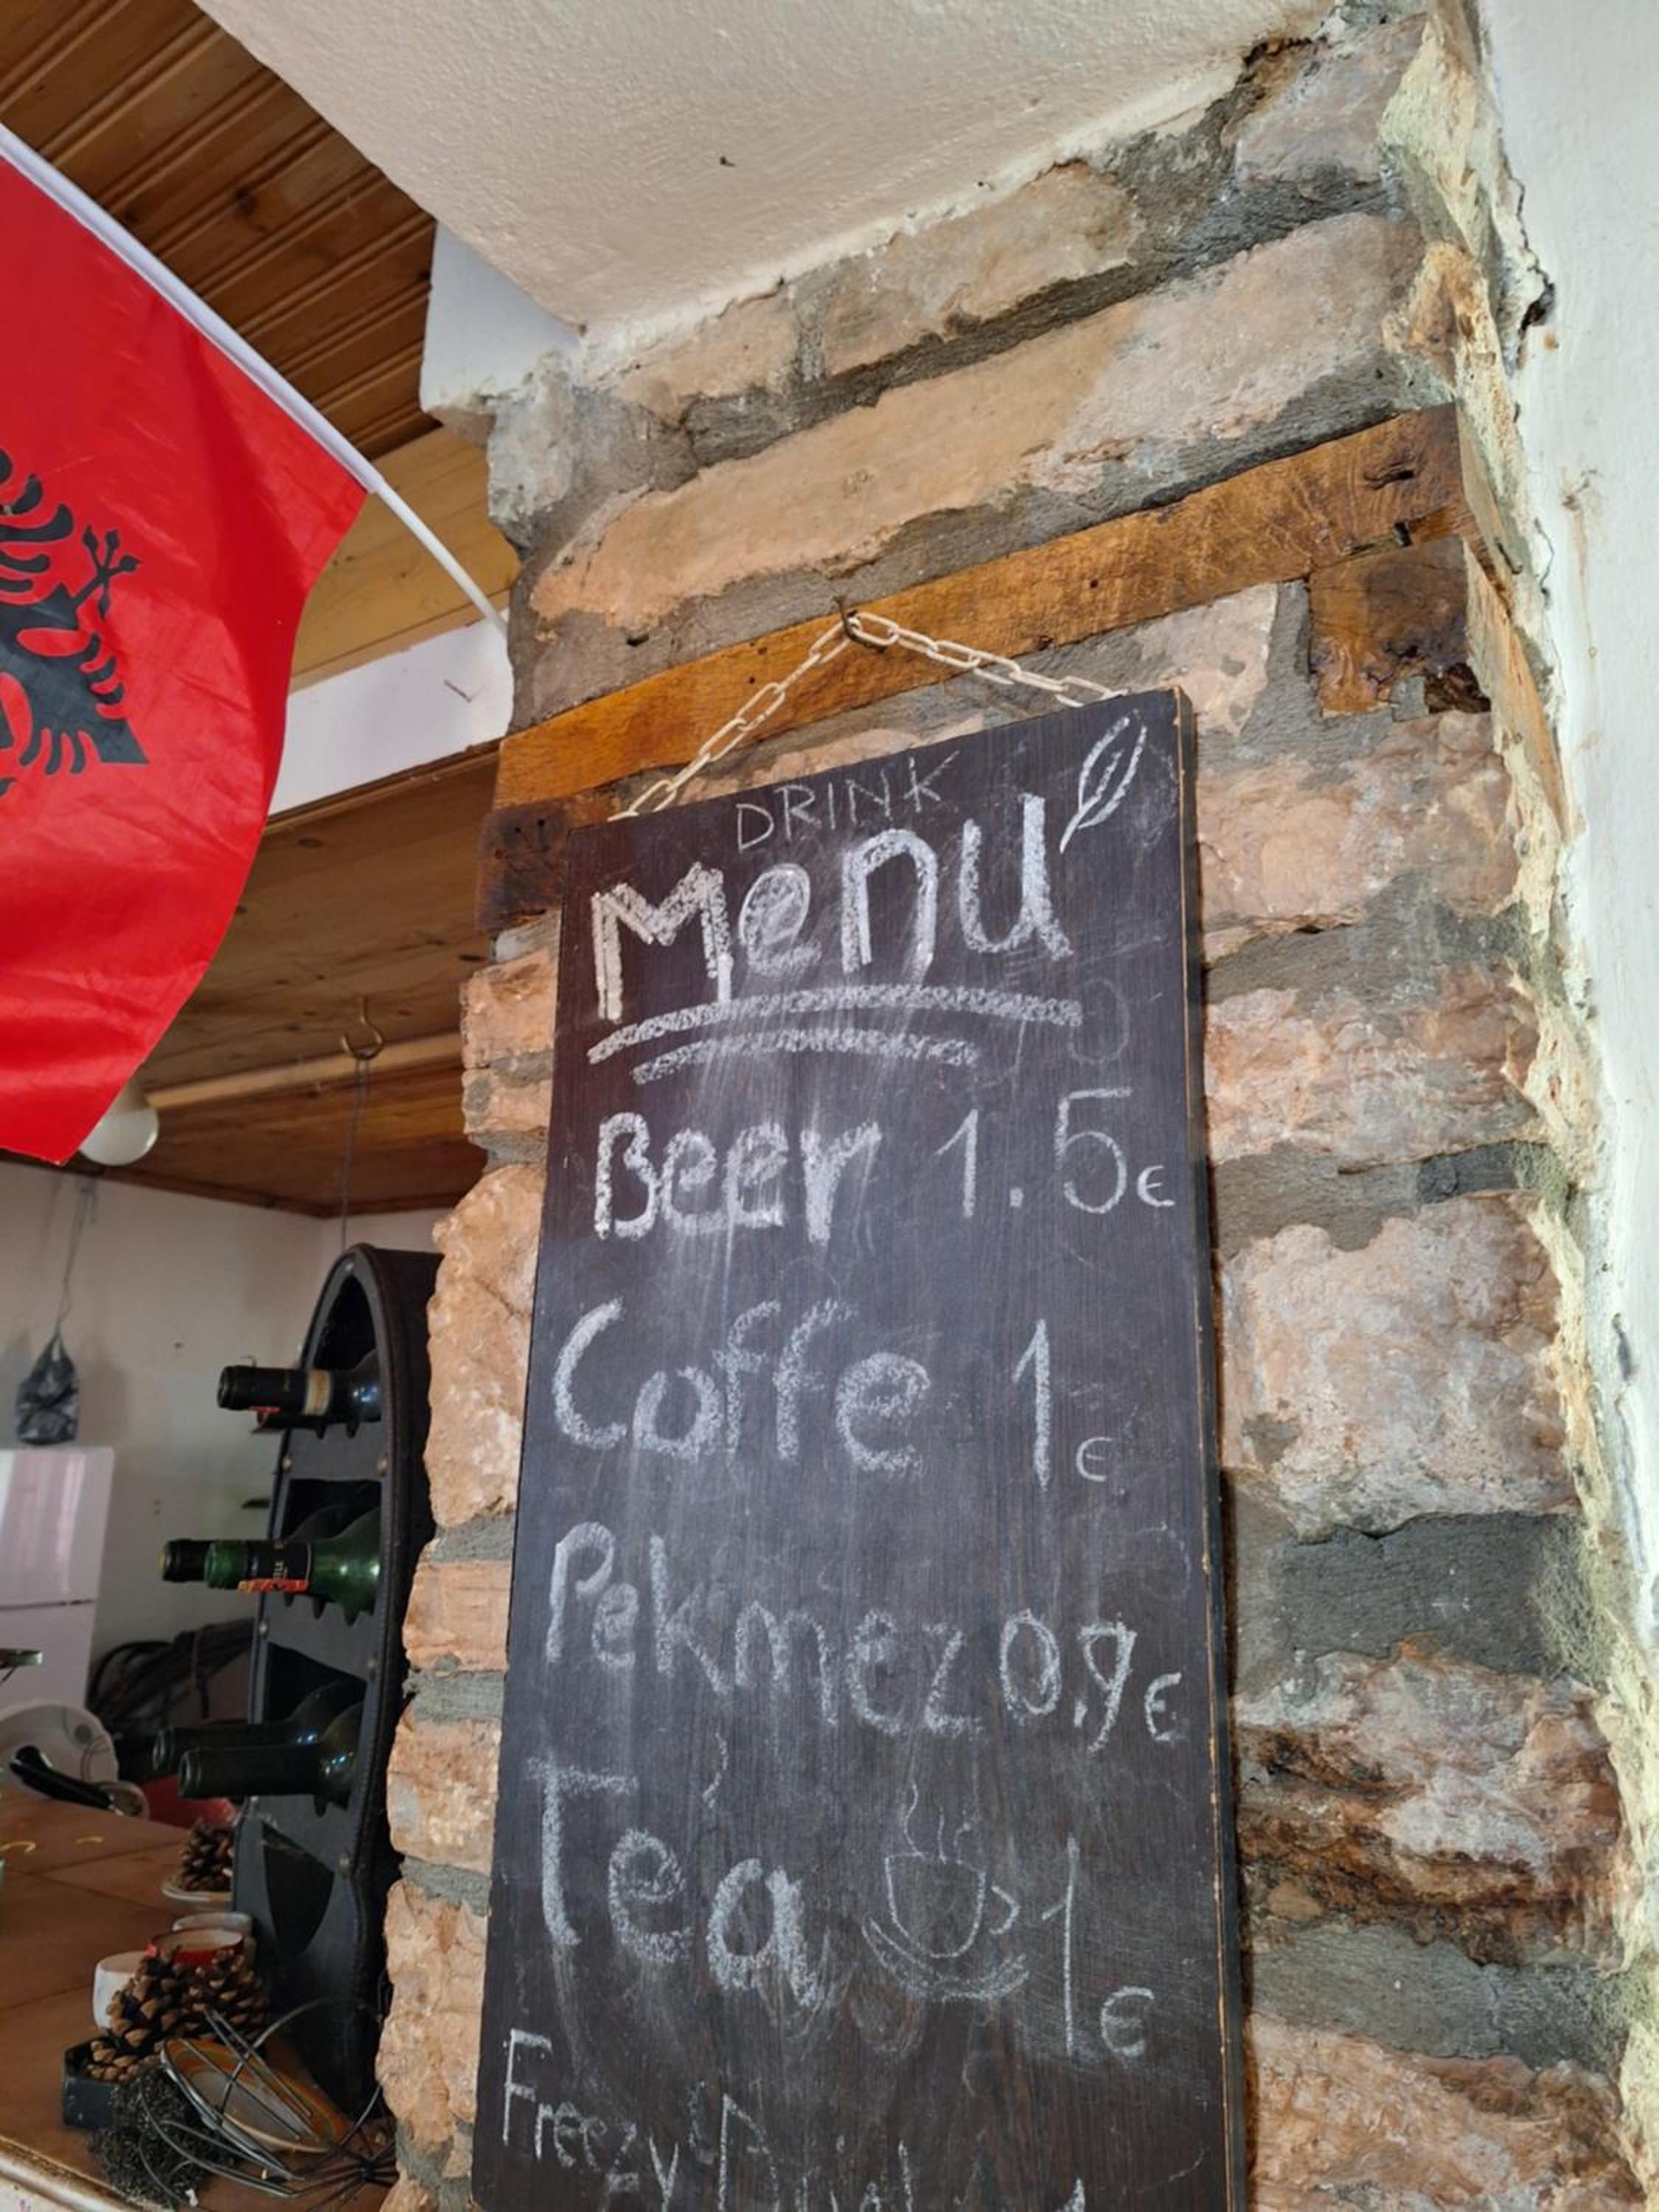 DRINK
Menu
Beer 1.5€
Coffe 1€
Pekmez 0.9€
Tea 1€
Freezy